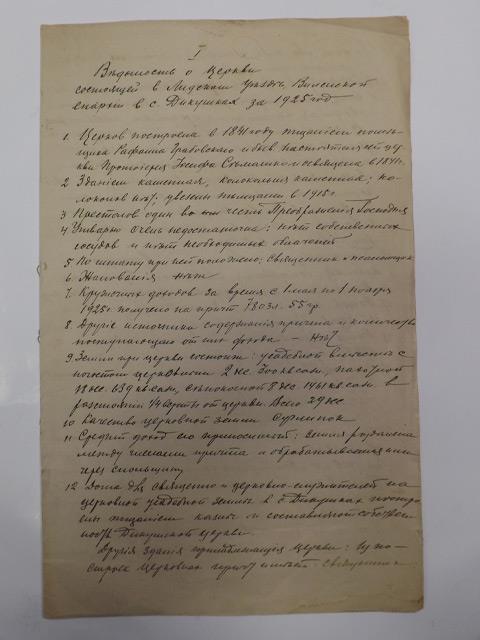 I
Вѣдомость о Церкви
состоящей в Лидском Уездѣ, Виленской
епархіи в с. Дикушках за 1925 год
1. Церковь построена в 1841 году тщаніем помѣ-
щика Рафаила Грабовскаго и быв. настоятеля сей цер
кви Протоіерея Іосифа освящена в 1841 г.
2 Зданіем каменная, колокольня каменная; ко-
локола увезены нѣмцами в 1915 г.
3 Престолов один во имя честь Преображенія Господня
4 Утварью очень недостаточна: нѣт собственных
сосудов и нѣт необходимых облаченій
5 По штату при ней положено: священник и псаломщик
6 Жалованія нѣт
7. Кружечных доходов за время с 1 мая по 1 ноября
1925 г. получено на причт 780 зл. 55 гр.
8. Другіе источники содержанія причта и количество
поступающаго от них дохода — нѣт
9. Земли при церкви состоит: усадебной вмѣстѣ с
погостом церковным 2 дес 300 кв. саж, пахотной
639 кв. саж, сѣнокосной 8 дес 1461 кв. саж. в
разстояніи версты от церкви. Всего 29 дес.
10 Качество церковной земли Суглинок
11 Средній доход ею приносимый: земля раздѣлена
между членами причта и обрабатывается ими
через
12. Дома для священно и церковно-служителей на
церковной усадебной землѣ в с. Дикушках постро
ены тщаніем казны и составляют собствен
ность Дикушской церкви.
Другія зданія принадлежащія Церкви: Из по-
строек Церковных священник